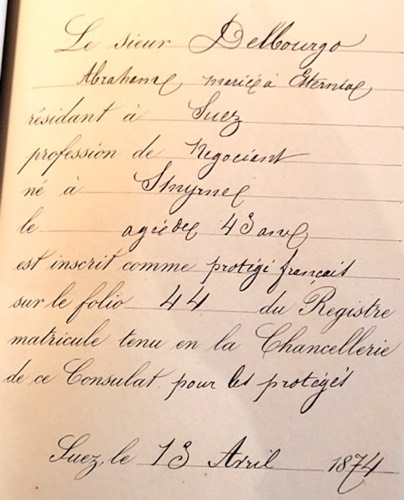 Le sieur Delbourgo
Abraham marié à Esternia
résidant à Suez
profession de Negociant
né à Smyrne
le agée de 43 ans
est inscrit comme protégé français
sur le folio 44 du Registre
matricule tenu en la Chancellerie
de ce Consulat pour les protégés
Suez, le 13 Avril 1874